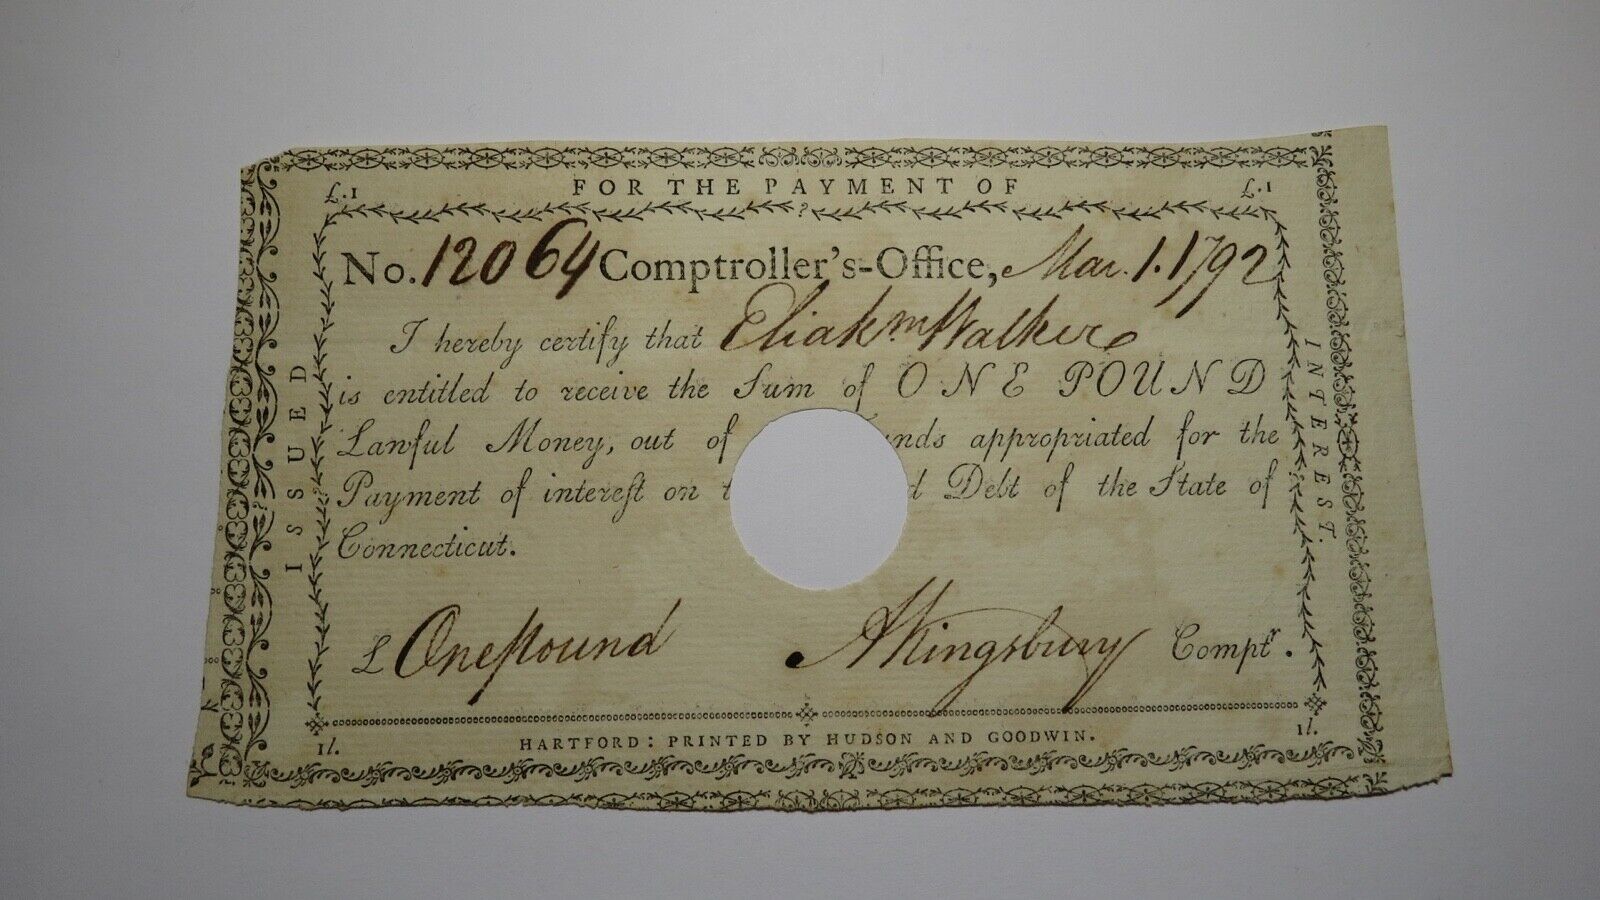 £.1 FOR THE PAYMENT OF £.1
No. 12064 Comptroller's-Office, Mar. 1. 1792
I hereby certify that Eliakm Walker
is entitled to receive the Sum of ONE POUND
Lawful Money, out of nds appropriated for the
Payment of interest on d Debt of the State of
Connecticut.
£ One pound AKingsbury Comptr.
1l. HARTFORD: PRINTED BY HUDSON AND GOODWIN. 1l.
ISSUED
INTEREST.